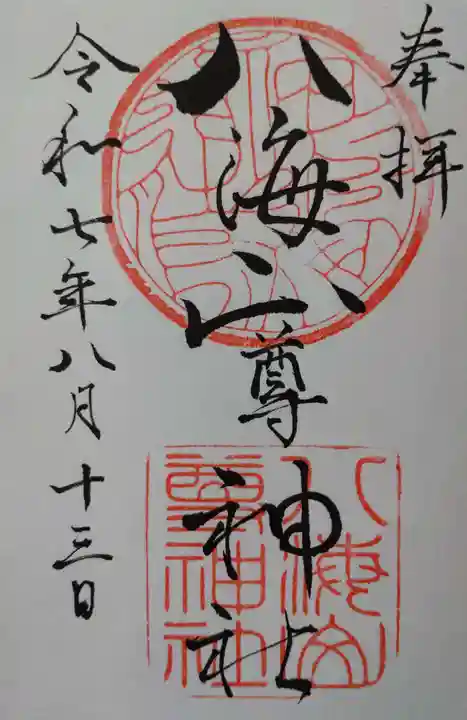 奉拝
八海山尊神社
令和七年八月十三日
八海山
尊神社